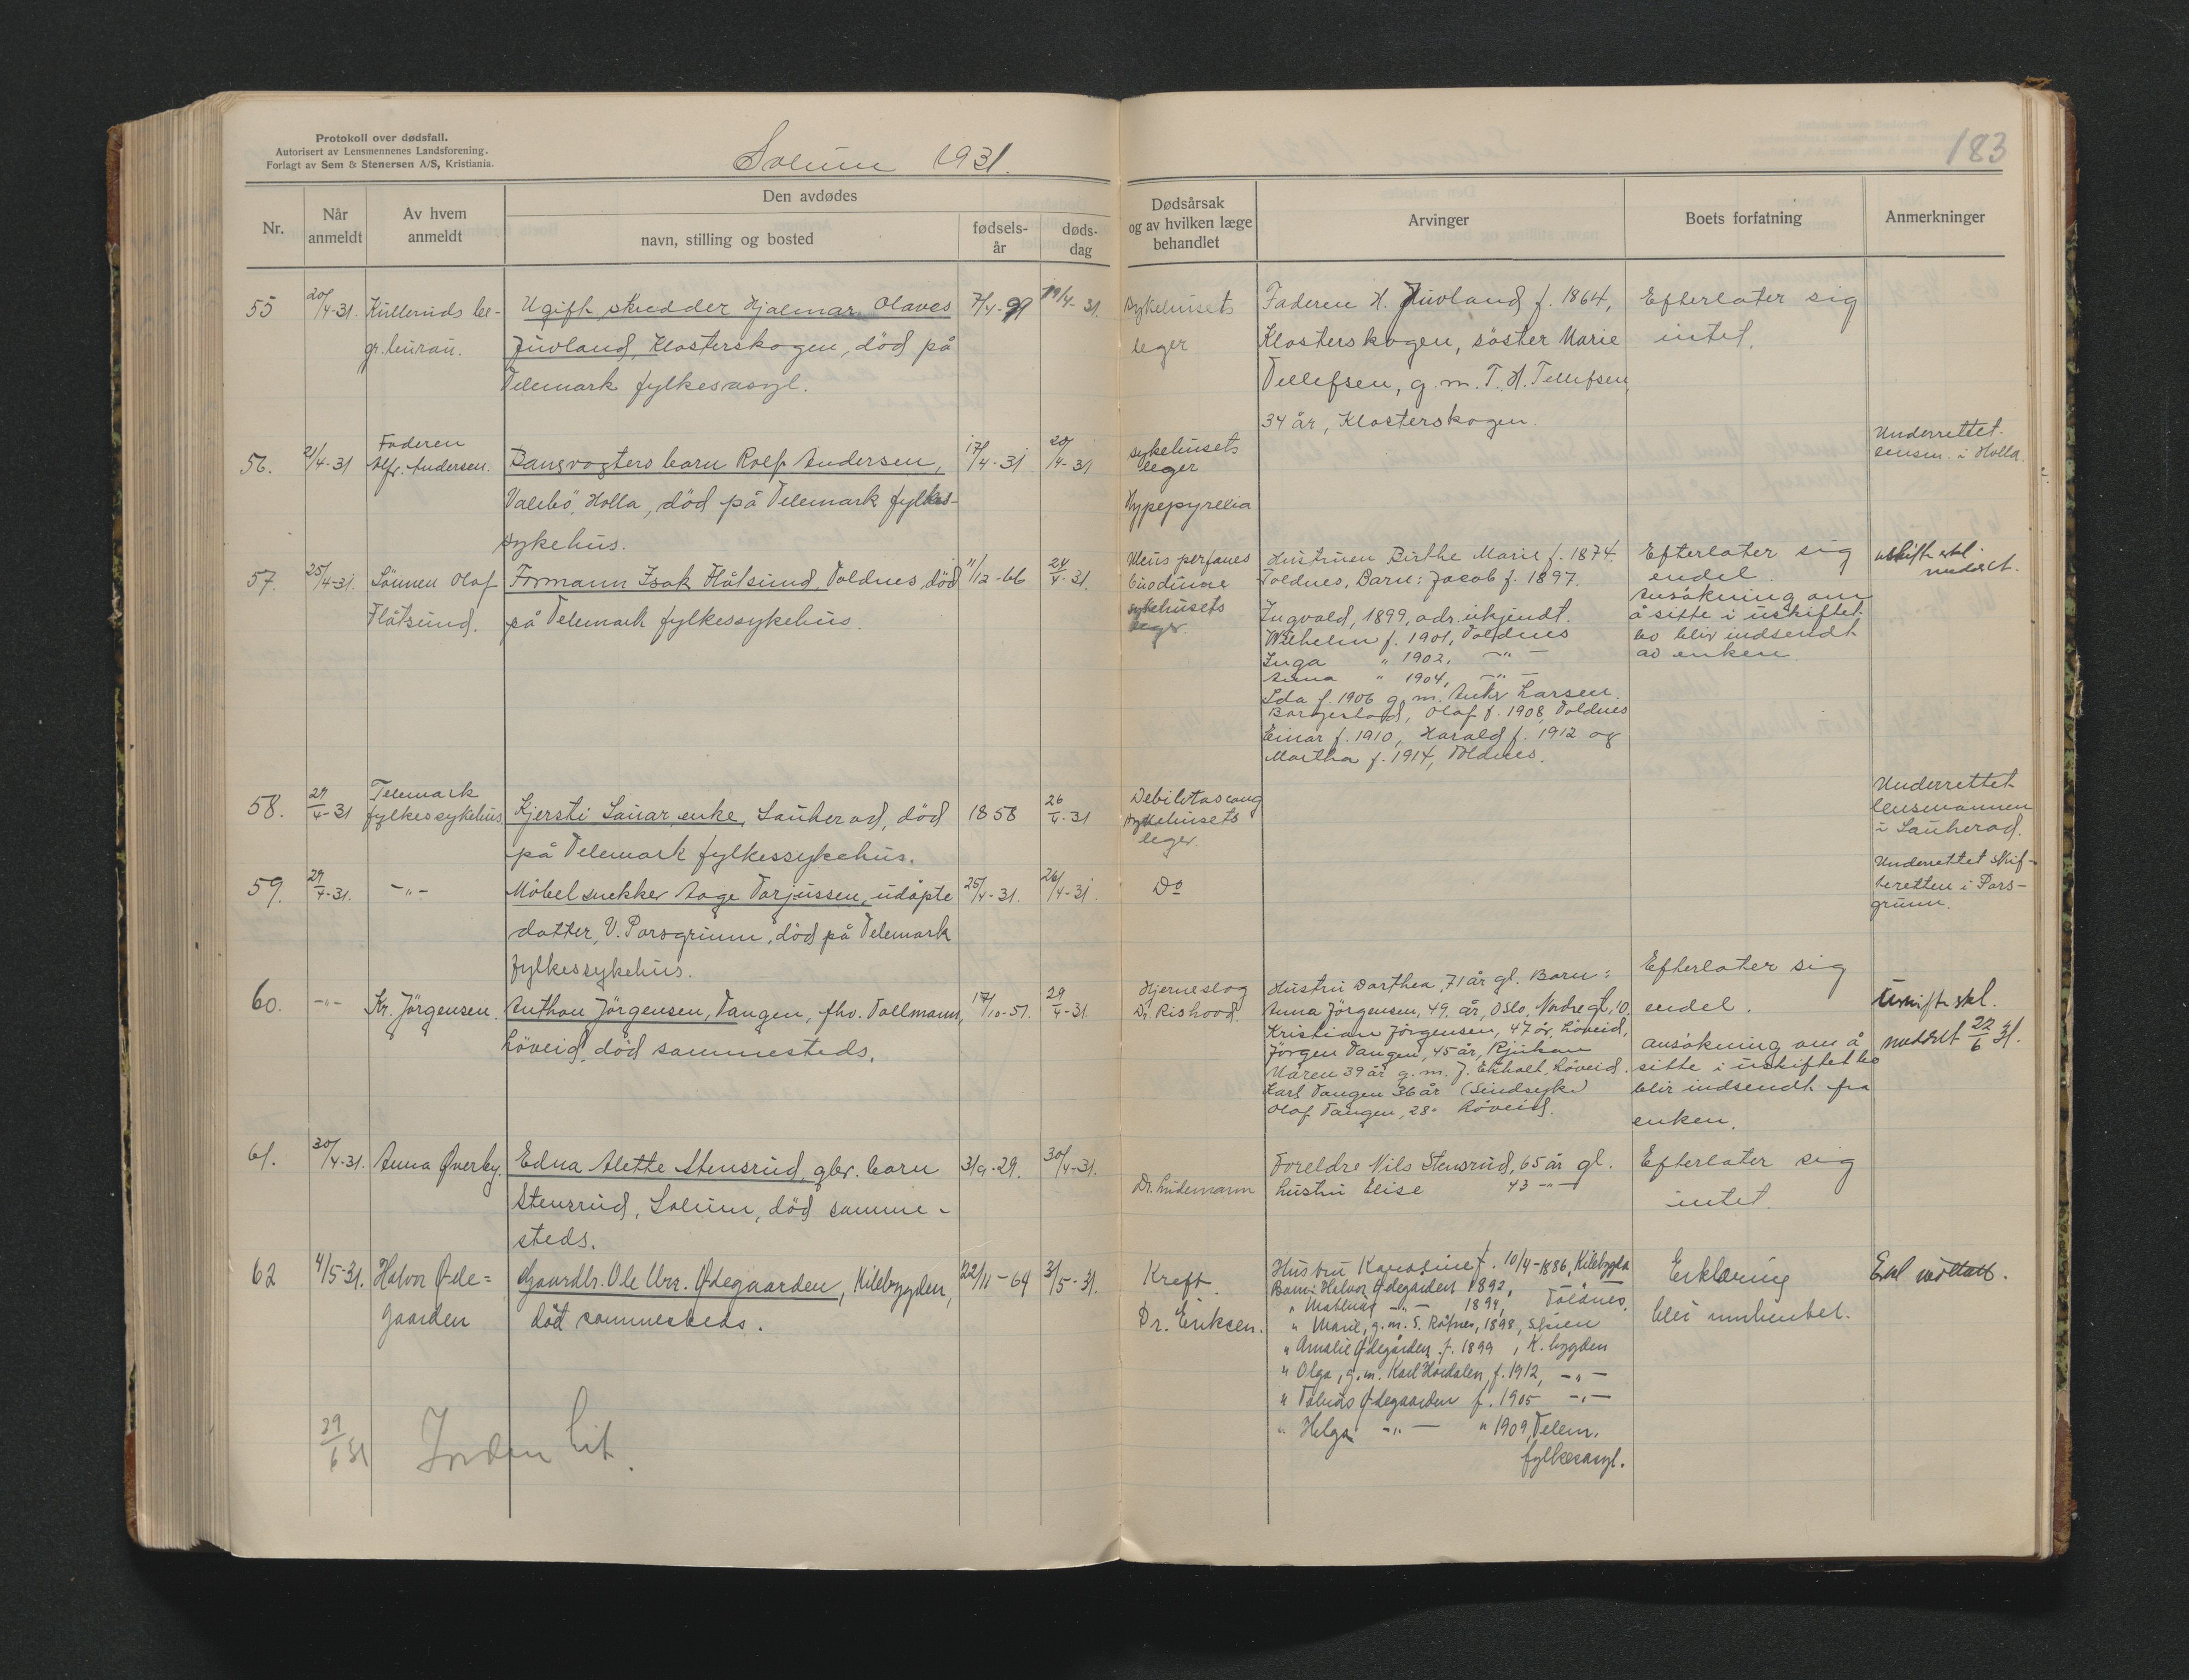 Protokoll over dødsfall.
Autorisert av Lensmennenes Landsforening.
Forlagt av Sem & Stenersen A/S, Kristiania.
Solum 1931.
183
Nr.
Når anmeldt
Av hvem anmeldt
Den avdødes
navn, stilling og bosted
fødsels-år
døds-dag
Dødsårsak og av hvilken læge behandlet
Arvinger
Boets forfatning
Anmerkninger
55
20/4-31.
Kulleruds be-
gr. burau.
Ugift skredder Hjalmar Olaves
Juvland, Klosterskogen, död på
Telemark fylkesasyl.
7/4-99
19/4-31.
Sykehusets
leger
Faderen H. Juvland f. 1864,
Klosterskogen, söster Marie
Tellefsen, g. m. T. H. Tellefsen,
34 år, Klosterskogen.
Efterlater sig
intet.
56.
21/4-31
Faderen
Alfr. Andersen.
Banevogters barn Rolf Andersen,
Valebö, Holla, död på Telemark fylkes-
sykehus.
17/4-31
20/4-31
sykehusets
leger
Hypepyrexia
Underrettet
lensm. i Holla.
57.
25/4-31.
Sönnen Olaf
Flåtsund.
Formann Isak Flåtsund, Voldnes, död
på Telemark fylkessykehus.
11/12-66
24/4-31.
sykehusets
leger
Hustruen Birthe Marie f. 1874.
Voldnes, Barn: Jacob f. 1897.
Ingvald, 1899, adr. ukjendt.
Wilhelm f. 1901, Voldnes
Inga " 1902, -"-
Anna " 1904, -"-
Ida f. 1906 g. m. Larsen.
Borgestad, Olaf f. 1908, Voldnes
Einar f. 1910, Harald f. 1912 og
Martha f. 1914, Voldnes.
Efterlater sig
endel.
Ansökning om
å sitte i uskiftet
bo blir indsendt
av enken.
58.
29/4-31
Telemark
fylkessykehus
Kjersti Sauar, enke, Sauherad, död
på Telemark fylkessykehus.
1858
26/4-31
sykehusets
leger.
Underrettet
lensmannen
i Sauherad.
59.
29/4-31.
-"-
Möbelsnekker Aage Torjussen, udöpte
datter, V. Porsgrunn, död på Telemark
fylkessykehus.
25/4-31.
26/4-31.
Do
Underrettet skif-
teretten i Pors-
grunn.
60.
-"-
Kr. Jörgensen.
Anthon Jörgensen, Tangen, fhv. Tollmann,
Löveid, död sammesteds.
17/10-57.
29/4-31
Hjerneslag
Dr. Rishovd.
Hustru Dorthea, 71 år gl. Barn:
Anna Jörgensen, 49 år, Oslo, Nordre gt. 10.
Kristian Jörgensen, 47 år, Löveid,
Jörgen Tangen, 45 år, Rjukan
Maren 39 år g. m. J. Ekholt, Löveid.
Karl Tangen 36 år (Sindsyk)
Olaf Tangen, 28" Löveid.
Efterlater sig
endel.
ansökning om å
sitte i uskiftet bo
blir indsendt fra
enken.
Uskift. skl.
meddelt 22/6 31.
61.
30/4-31.
Anna Överby.
Edna Alette Stensrud, gbr. barn
Stensrud, Solum, död samme-
steds.
3/9-29.
30/4-31.
Dr. Lindemann
Foreldre Nils Stensrud, 65 år gl.
hustru Elise 43 -"-
Efterlater sig
intet.
62
4/5-31.
Halvor Øde=
gaarden
Gaardbr. Ole Ødegaarden, Kilebygden,
död sammesteds.
22/11-64
3/5-31.
Kreft.
Dr. Eriksen.
Hustru f. 10/4-1886, Kilebygda
Barn: Halvor Ødegarden 1892, -"-
" -"- 1894, Voldnes.
" Marie, g. m. S. 1898, Skien
" Amalie Ødegården f. 1899, K. bygden
" Olga, g. m. Karl f. 1912, -"-
" Ødegaarden f. 1905 -"-
" Helga -"- " 1909, Telem.
fylkesasyl.
Erklæring
blei innhentet.
29/6 31